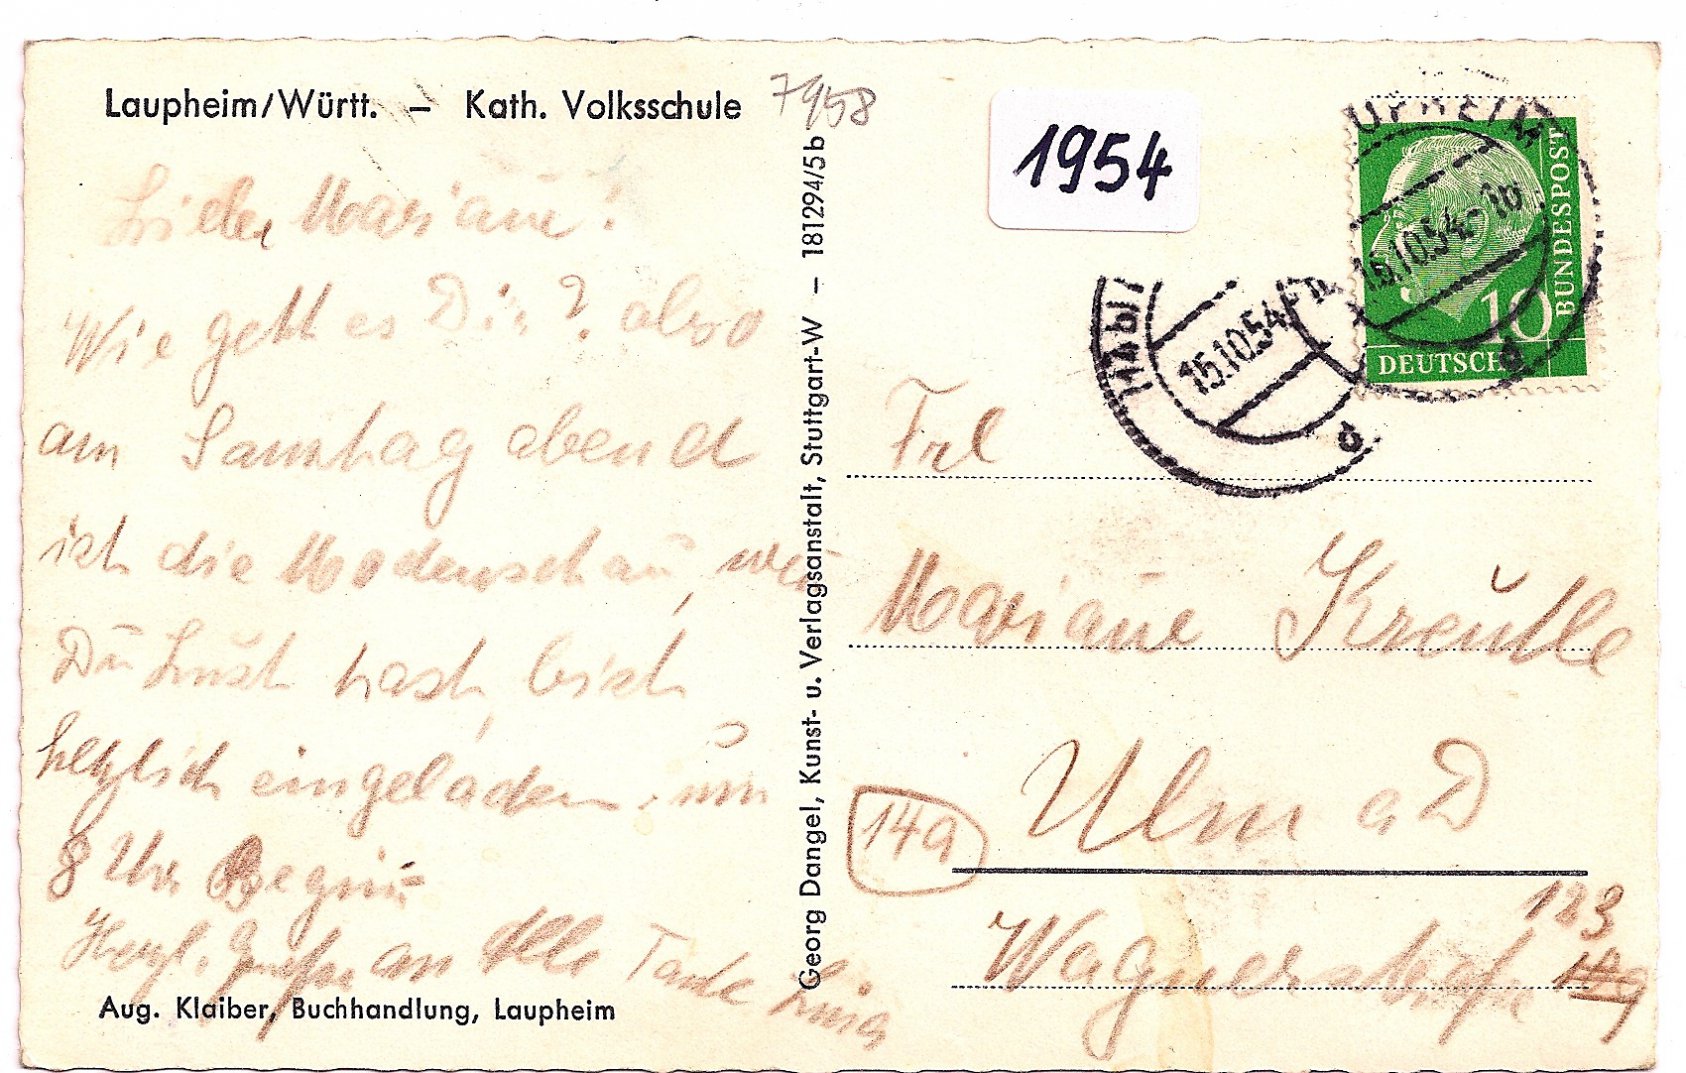 Laupheim/Württ. – Kath. Volksschule
7958
Liebe Mariane!
Wie geht es Dir? also
am Samstag abend
ist die Modenschau, wen
Du Lust hast, bist
herzlich eingeladen. um
8 Uhr Begin
Herzl. Grüße an Alle Tante Luise
Aug. Klaiber, Buchhandlung, Laupheim
Georg Dangel, Kunst- u. Verlagsanstalt, Stuttgart-W – 181294/5b
1954
UPHEIM
15.10.54
d
15.10.54
d
10
BUNDESPOST
DEUTSCH
Frl
Mariane Kreutle
14a
Ulm a D
Wagnerstraße 123